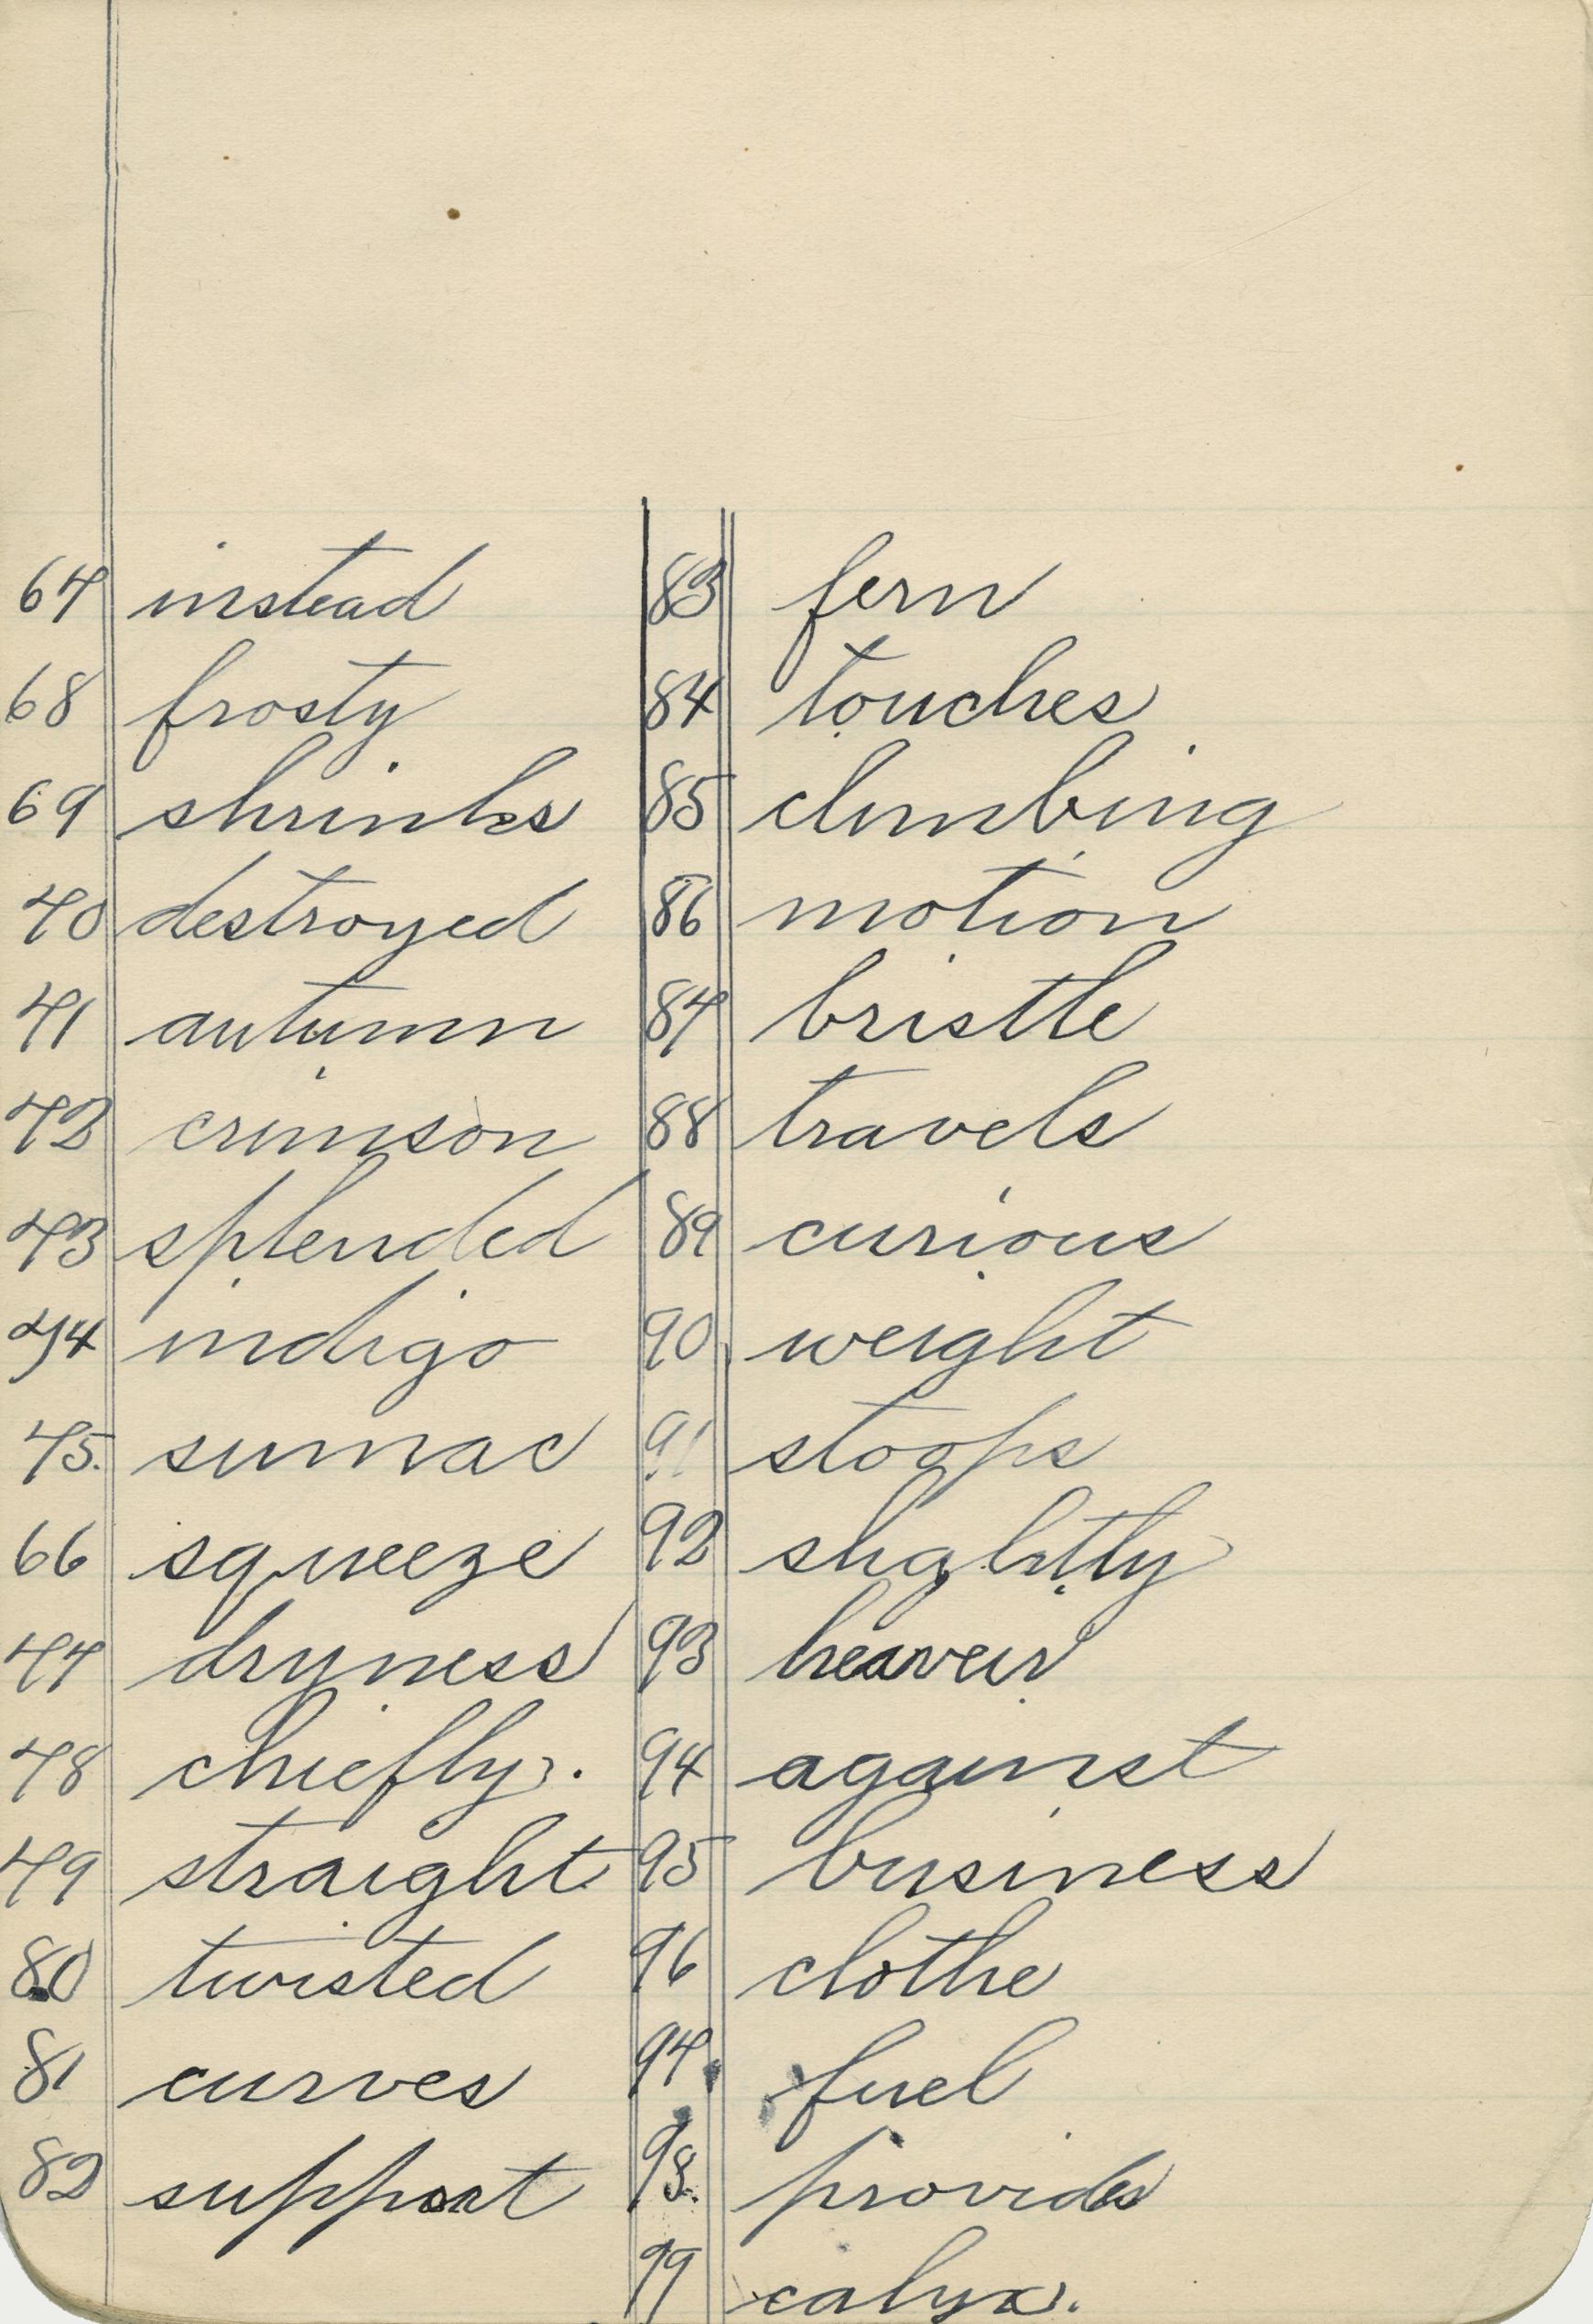 67 instead
68 frosty
69 shrinks
70 destroyed
71 autumn
72 crimson
73 splended
74 indigo
75. sumac
66 squeeze
77 dryness
78 chiefly.
79 straight
80 twisted
81 curves
82 support
83 fern
84 touches
85 climbing
86 motion
87 bristle
88 travels
89 curious
90 weight
91 stoops
92 slightly
93
94 against
95 business
96 clothe
97. fuel
98. provides
99 calyx.